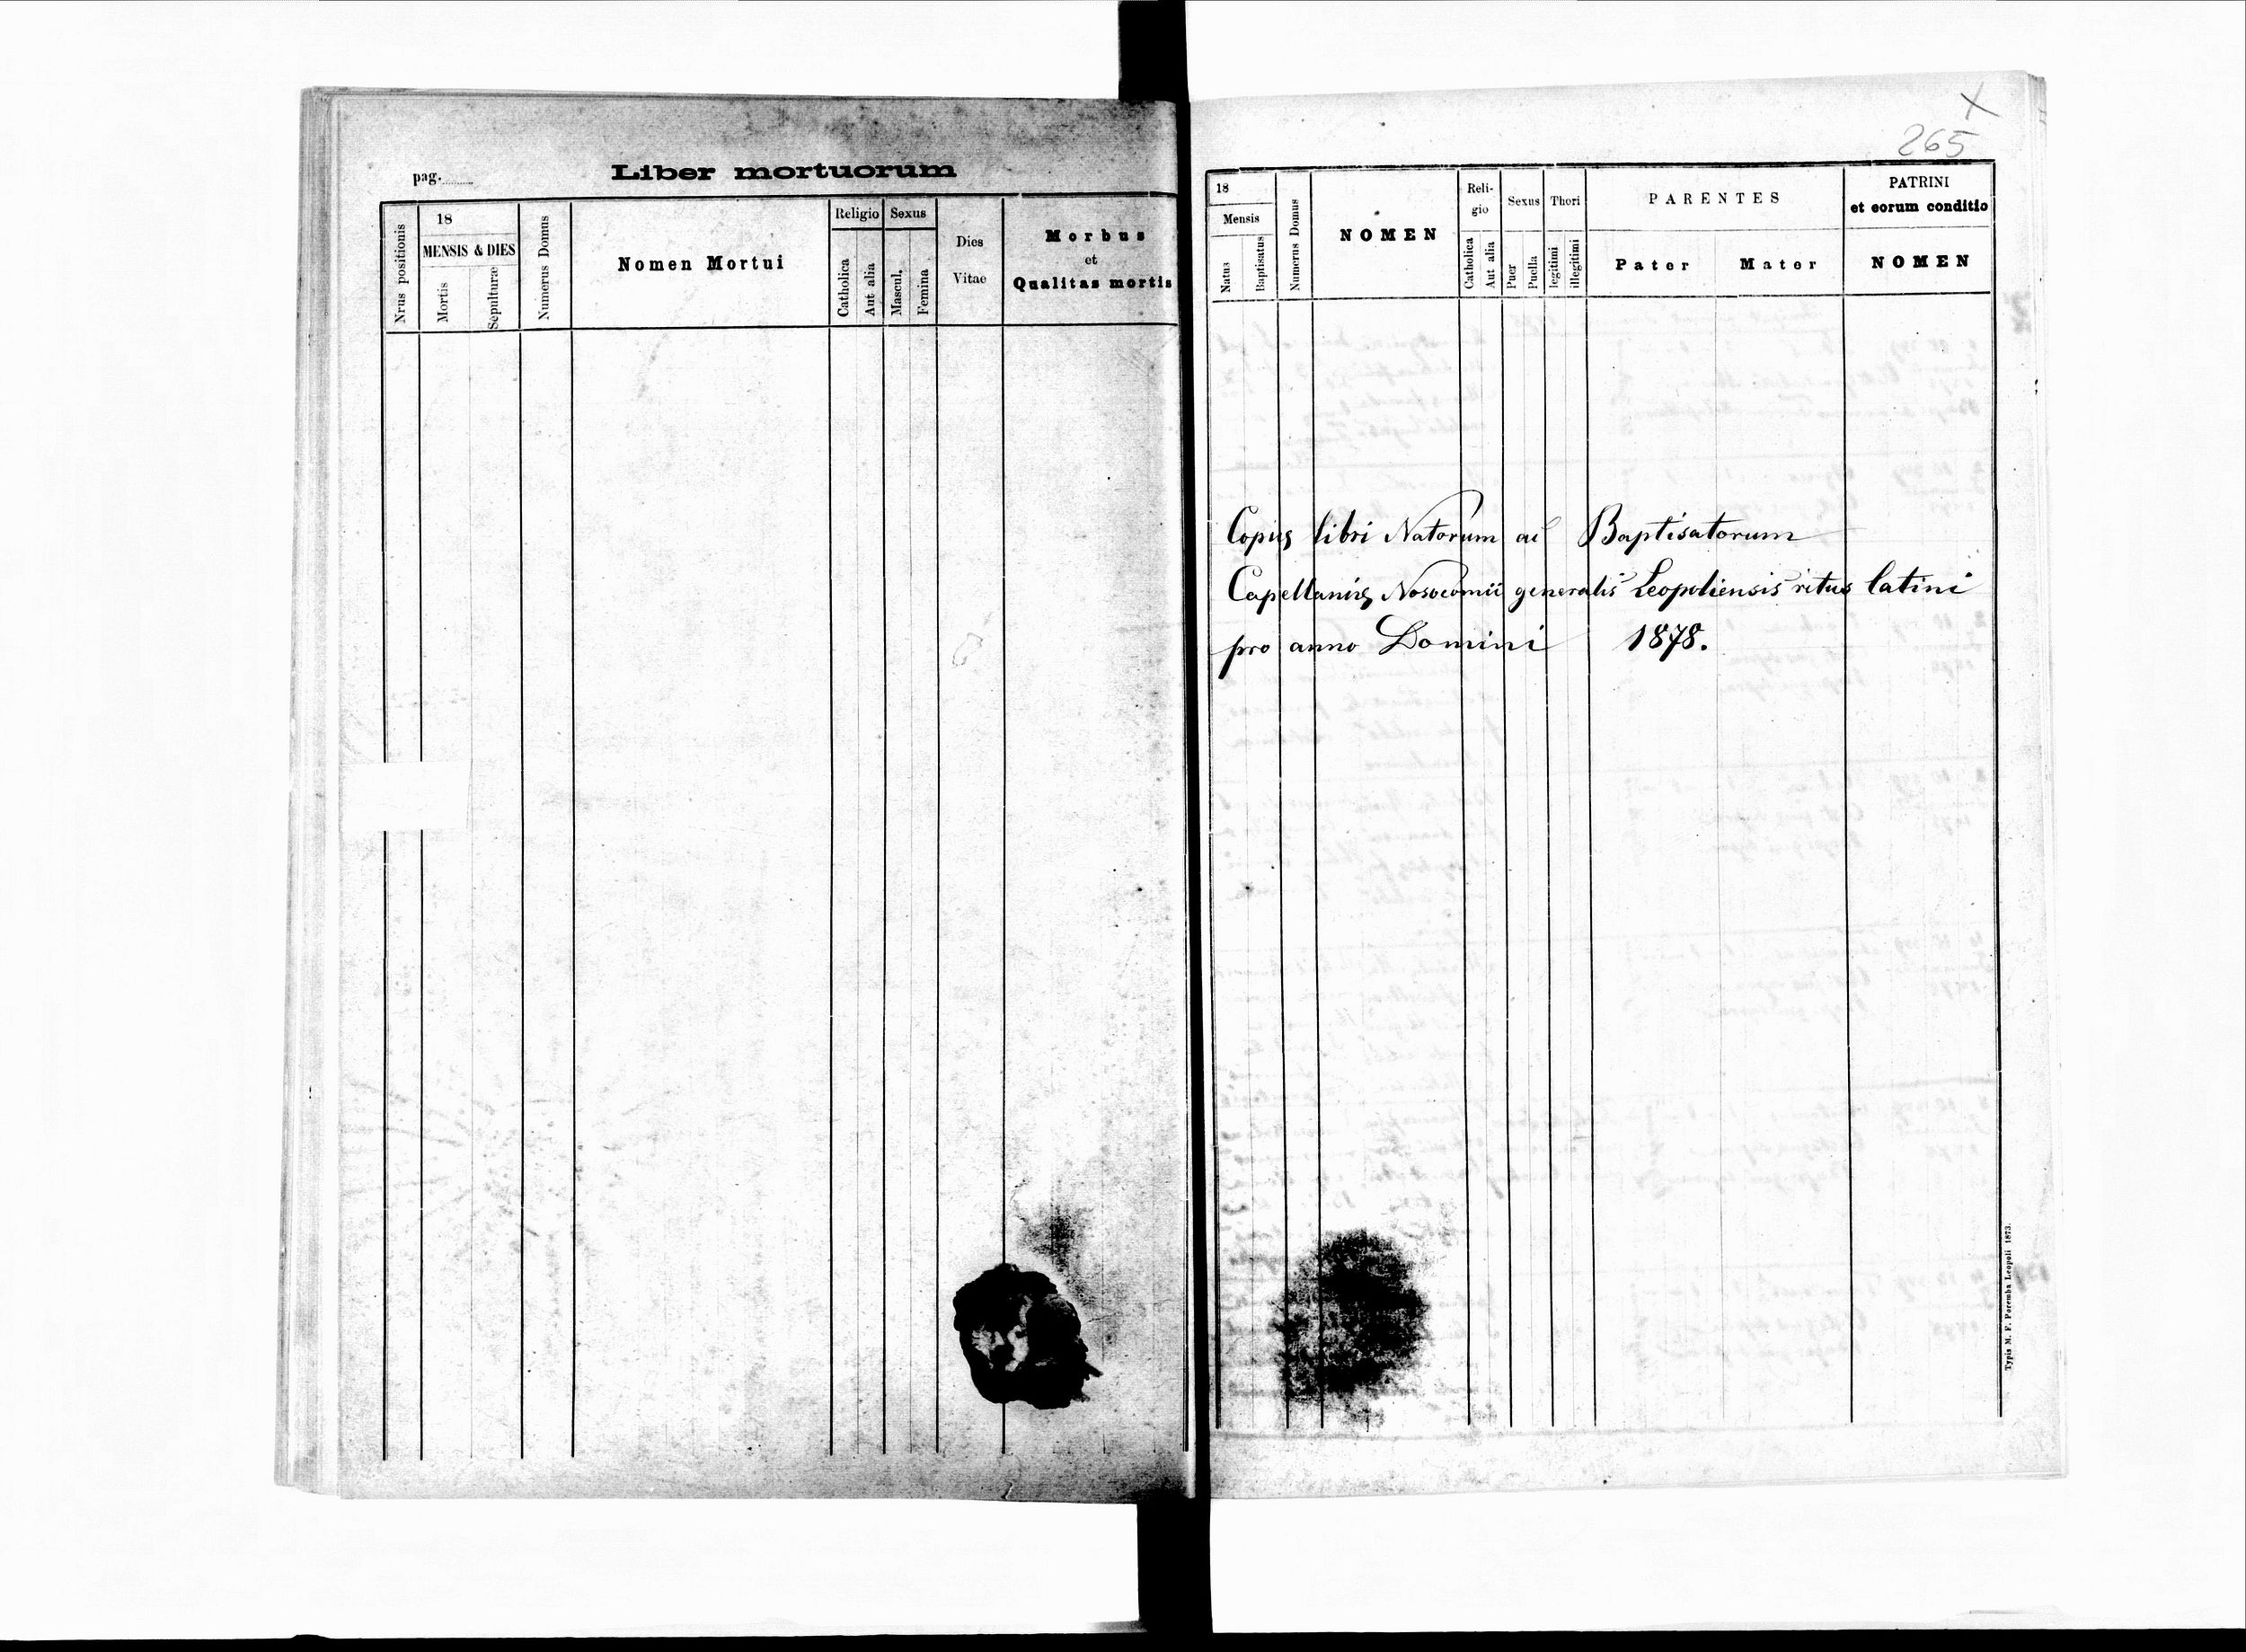 pag.
Liber mortuorum
Nrus positionis
18
MENSIS & DIES
Mortis
Sepulturæ
Numerus Domus
Nomen Mortui
Religio
Catholica
Aut alia
Sexus
Mascul.
Femina
Dies
Vitae
Morbus
et
Qualitas mortis
X
265
18
Mensis
Natus
Baptisatus
Numerus Domus
NOMEN
Reli-
gio
Catholica
Aut alia
Sexus
Puer
Puella
Thori
legitimi
illegitimi
PARENTES
Pater
Mater
PATRINI
et eorum conditio
NOMEN
Libri Natorum ac Baptisatorum
Nosocomii generalis Leopoliensis ritus latini
pro anno Domini 1878.
Typis M. F. Poremba Leopoli 1873.